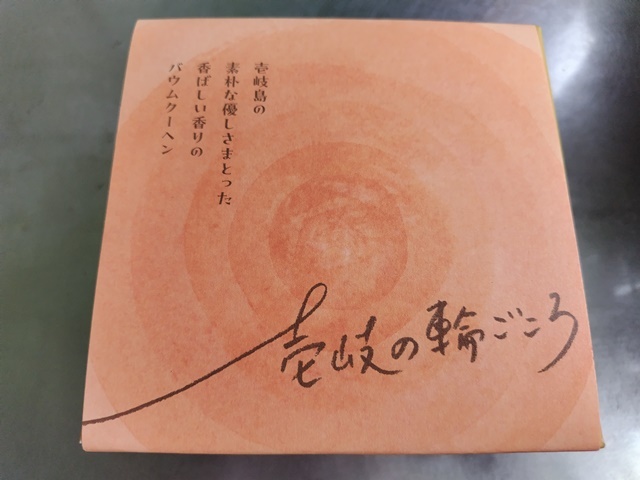 壱岐島の
素朴な優しさまとった
香ばしい香りの
バウムクーヘン
壱岐の輪ごころ